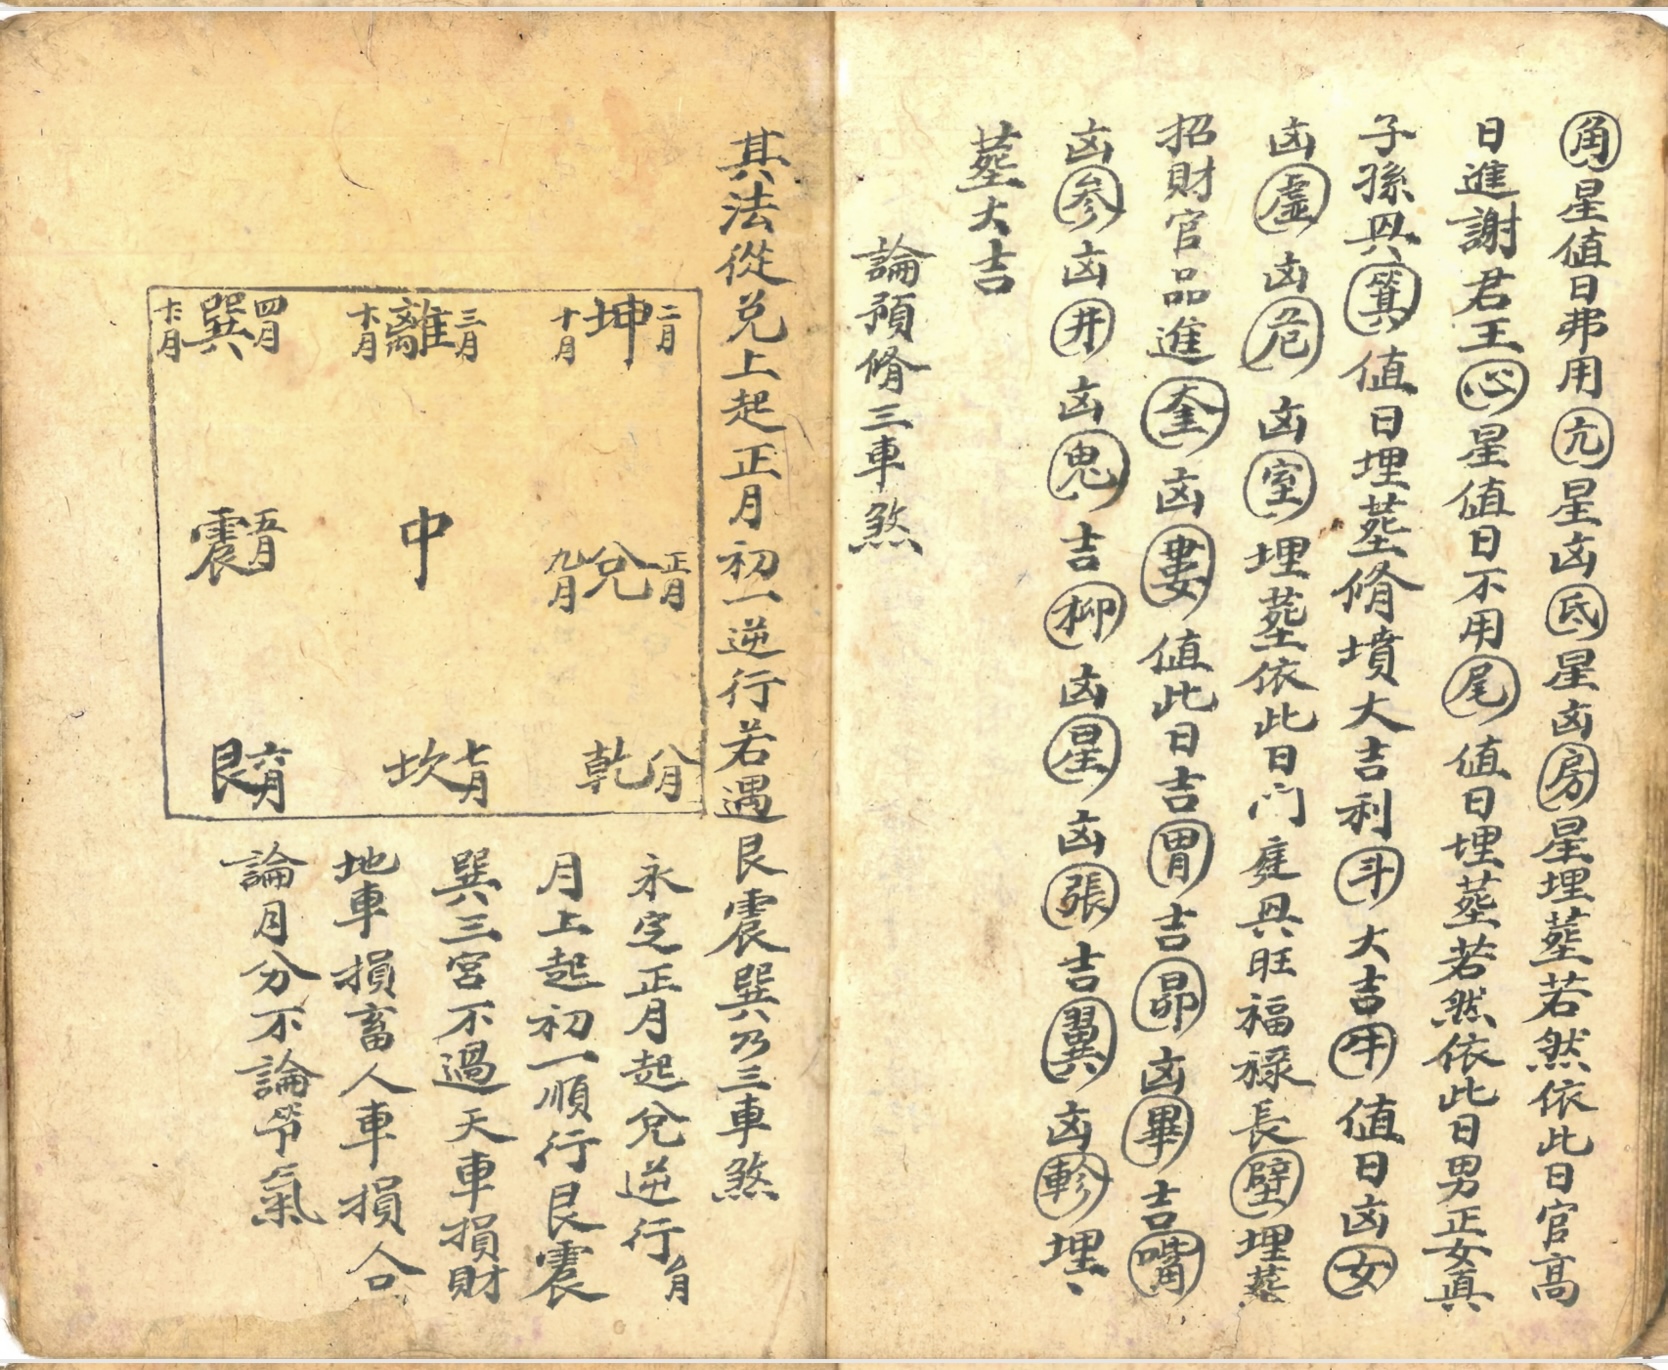 角星值日弗用亢星凶氐星凶房星埋塟若然依此日官高
日進謝君王心星值日不用尾值日埋塟若然依此日男正女真
子孫興箕值日埋塟脩墳大吉利斗大吉牛值日凶女
凶虛凶危凶室埋塟依此日门庭興旺福祿長壁埋塟
招財官品進奎凶婁值此日吉胃吉昴凶畢吉嘴
凶参凶井凶鬼吉柳凶星凶張吉翼凶軫埋
塟大吉
論預脩三車煞
其法從兌上起正月初一逆行若遇艮震巽乃三車煞
二月坤十月
三月離十一月
四月巽十二月
正月兌九月
中
五月震
八月乾
七月坎
六月艮
永定正月起兌逆行
月上起初一順行艮震
巽三宮不過天車損財
地車損畜人車損人口
論月分不論節氣